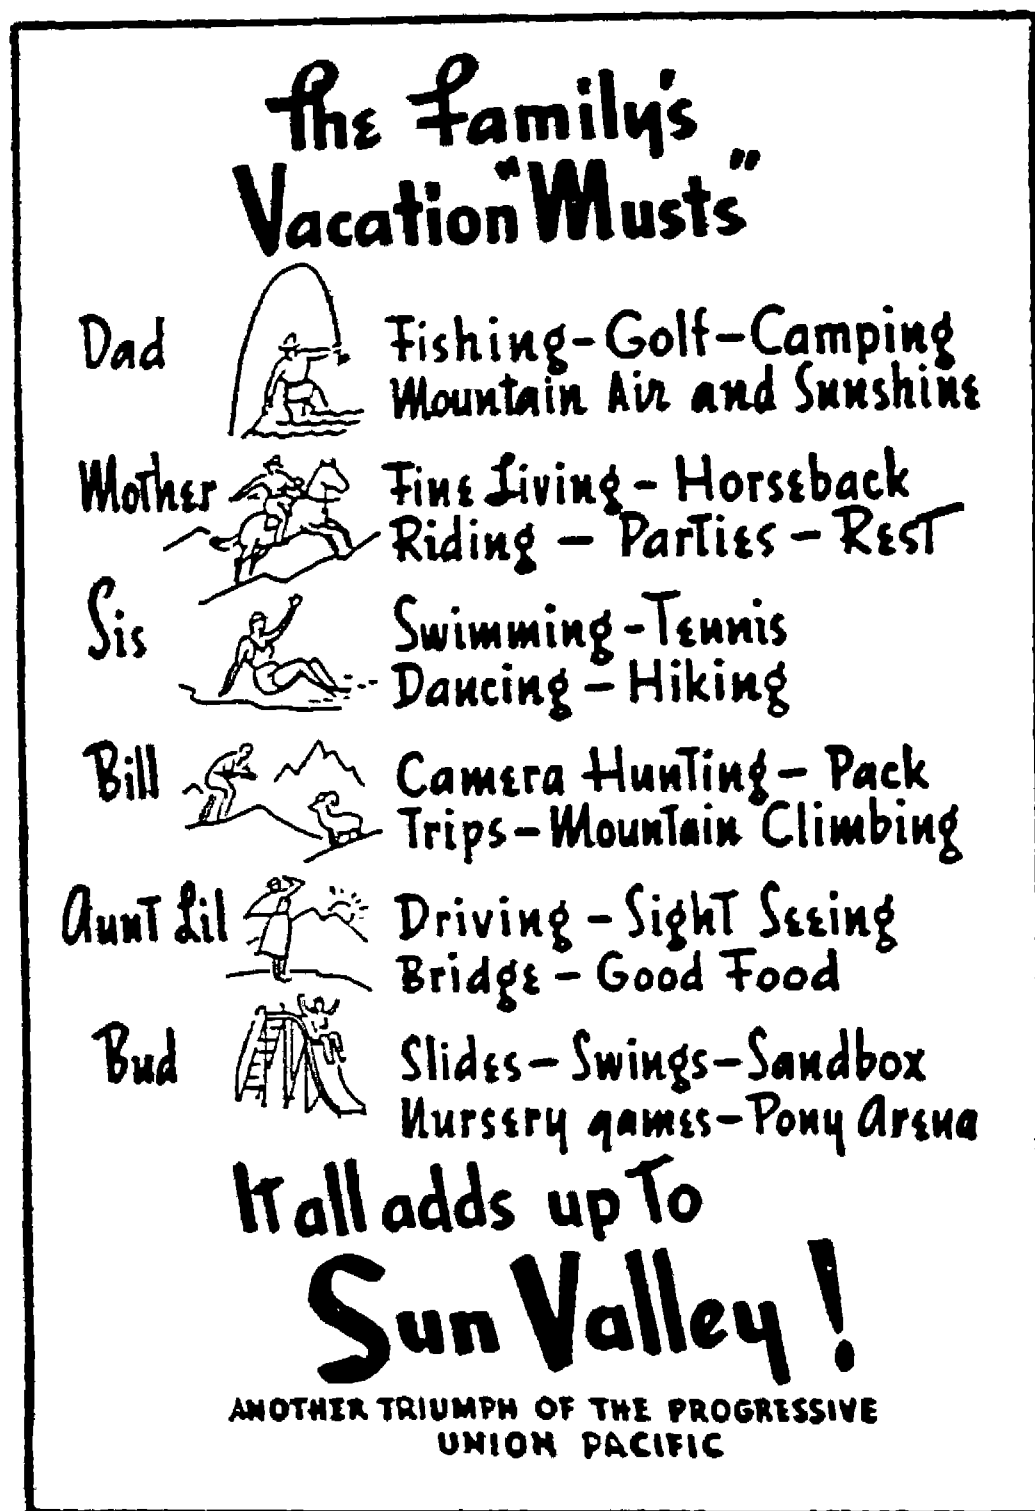 The Family's
Vacation "Musts"
Dad
Fishing - Golf - Camping
Mountain Air and Sunshine
Mother
Fine Living - Horseback
Riding - Parties - REST
Sis
Swimming - Tennis
Dancing - Hiking
Bill
Camera Hunting - Pack
Trips - Mountain Climbing
Aunt Lil
Driving - Sight Seeing
Bridge - Good Food
Bud
Slides - Swings - Sandbox
Nursery games - Pony Arena
It all adds up To
Sun Valley!
ANOTHER TRIUMPH OF THE PROGRESSIVE
UNION PACIFIC